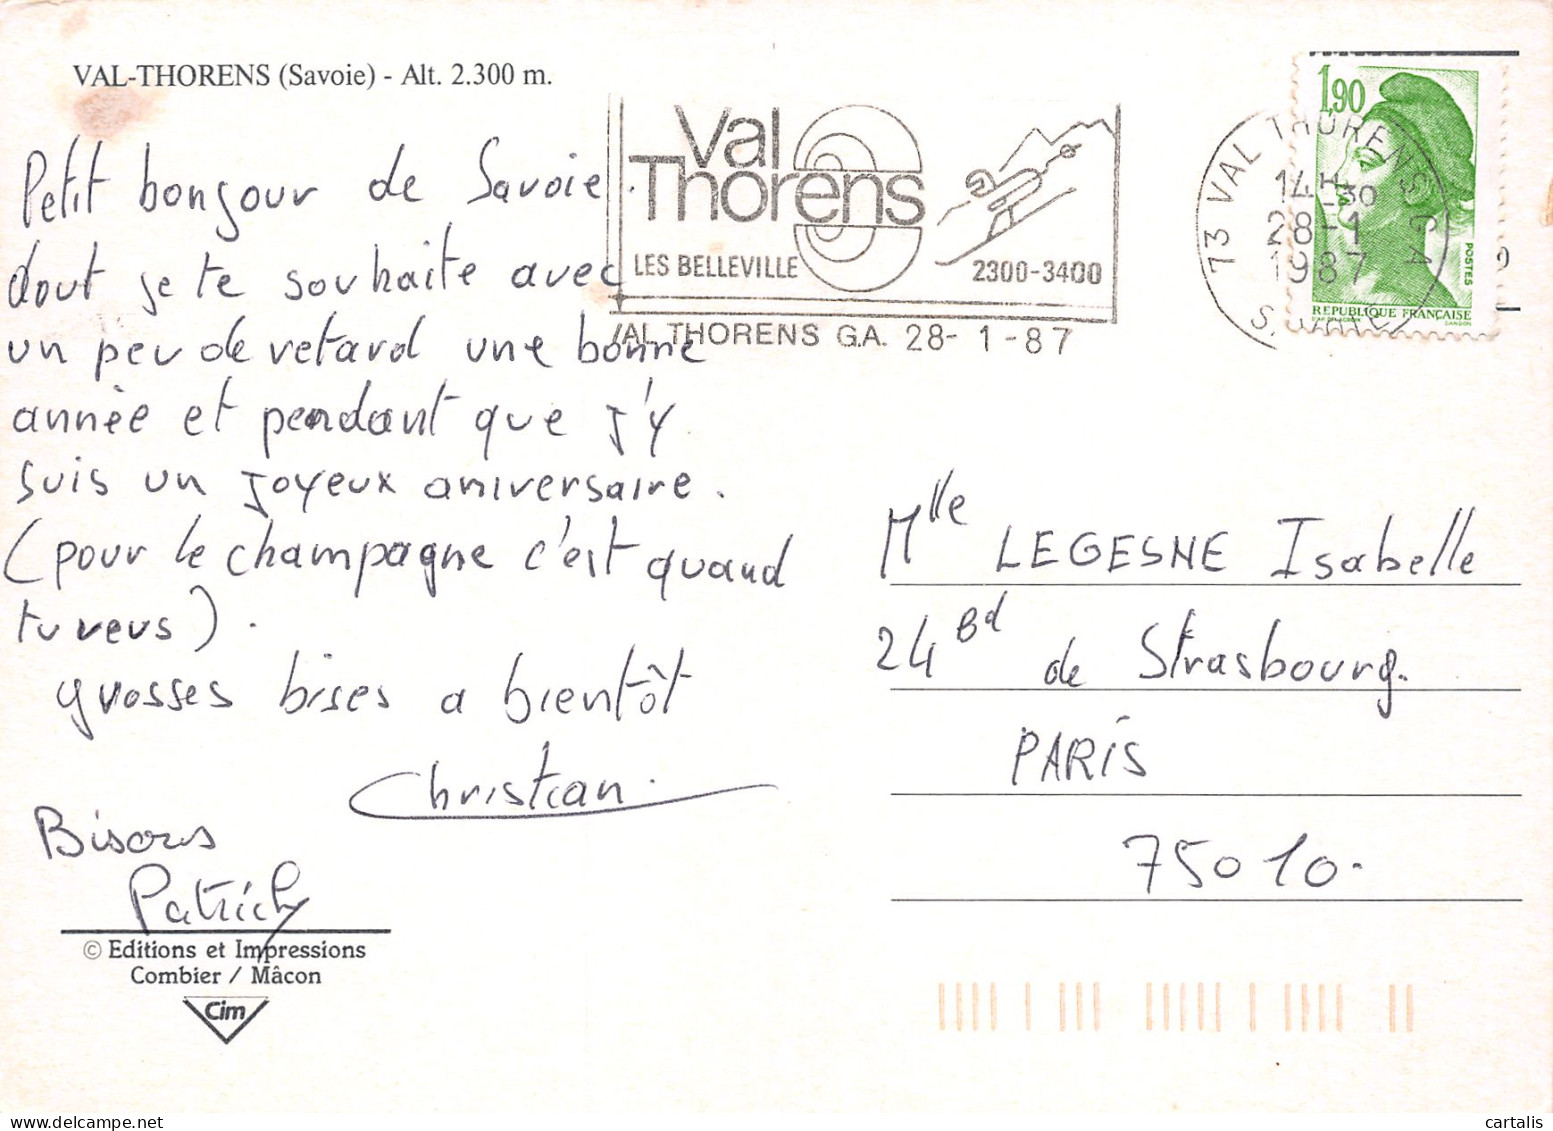 VAL-THORENS (Savoie) - Alt. 2.300 m.
Petit bonjour de Savoie.
dout je te souhaite avec
un peu de retard une bonne
année et pendant que j'y
suis un joyeux aniversaire.
(pour le champagne c'est quand
tu veus).
grosses bises a bientôt
Christian.
Bisous
Patrick
© Editions et Impressions
Combier / Mâcon
Cim
Val
Thorens
LES BELLEVILLE
2300-3400
VAL THORENS G.A. 28-1-87
73 VAL THORENS G A
14H30
28-1
1987
1,90
POSTES
REPUBLIQUE FRANÇAISE
D'AP. DELACROIX
GANDON
Mlle LEGESNE Isabelle
24 Bd de Strasbourg.
PARIS
75010.
cartalis